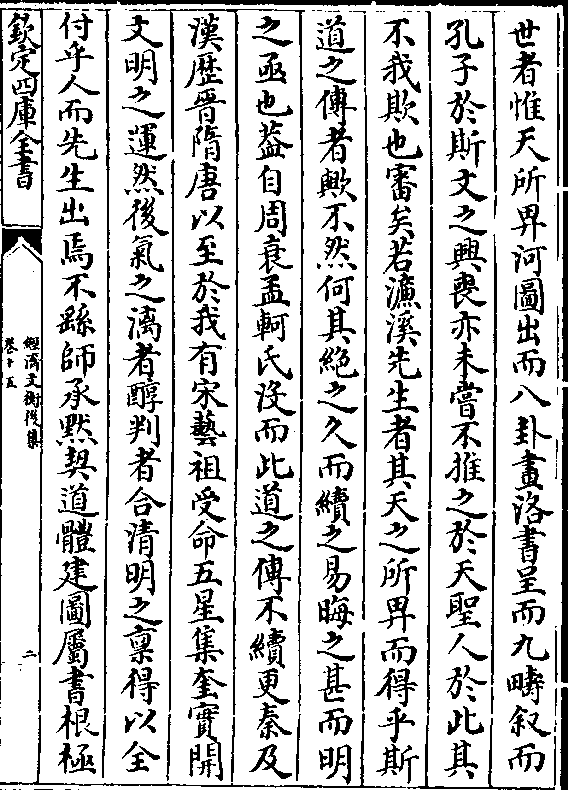 世者惟天所畀河圖出而八卦畫洛書呈而九疇叙而
孔子於斯文之興喪亦未嘗不推之於天聖人於此其
不我欺也審矣若濂溪先生者其天之所畀而得乎斯
道之傳者歟不然何其絶之久而續之易晦之甚而明
之亟也葢自周衰孟軻氏没而此道之傳不續更秦及
漢歴晉隋唐以至於我有宋藝祖受命五星集奎實開
文明之運然後氣之漓者醇判者合清明之稟得以全
付乎人而先生出焉不繇師承黙契道體建圖屬書根極
欽定四庫全書
經濟文衡後集
卷十五
二